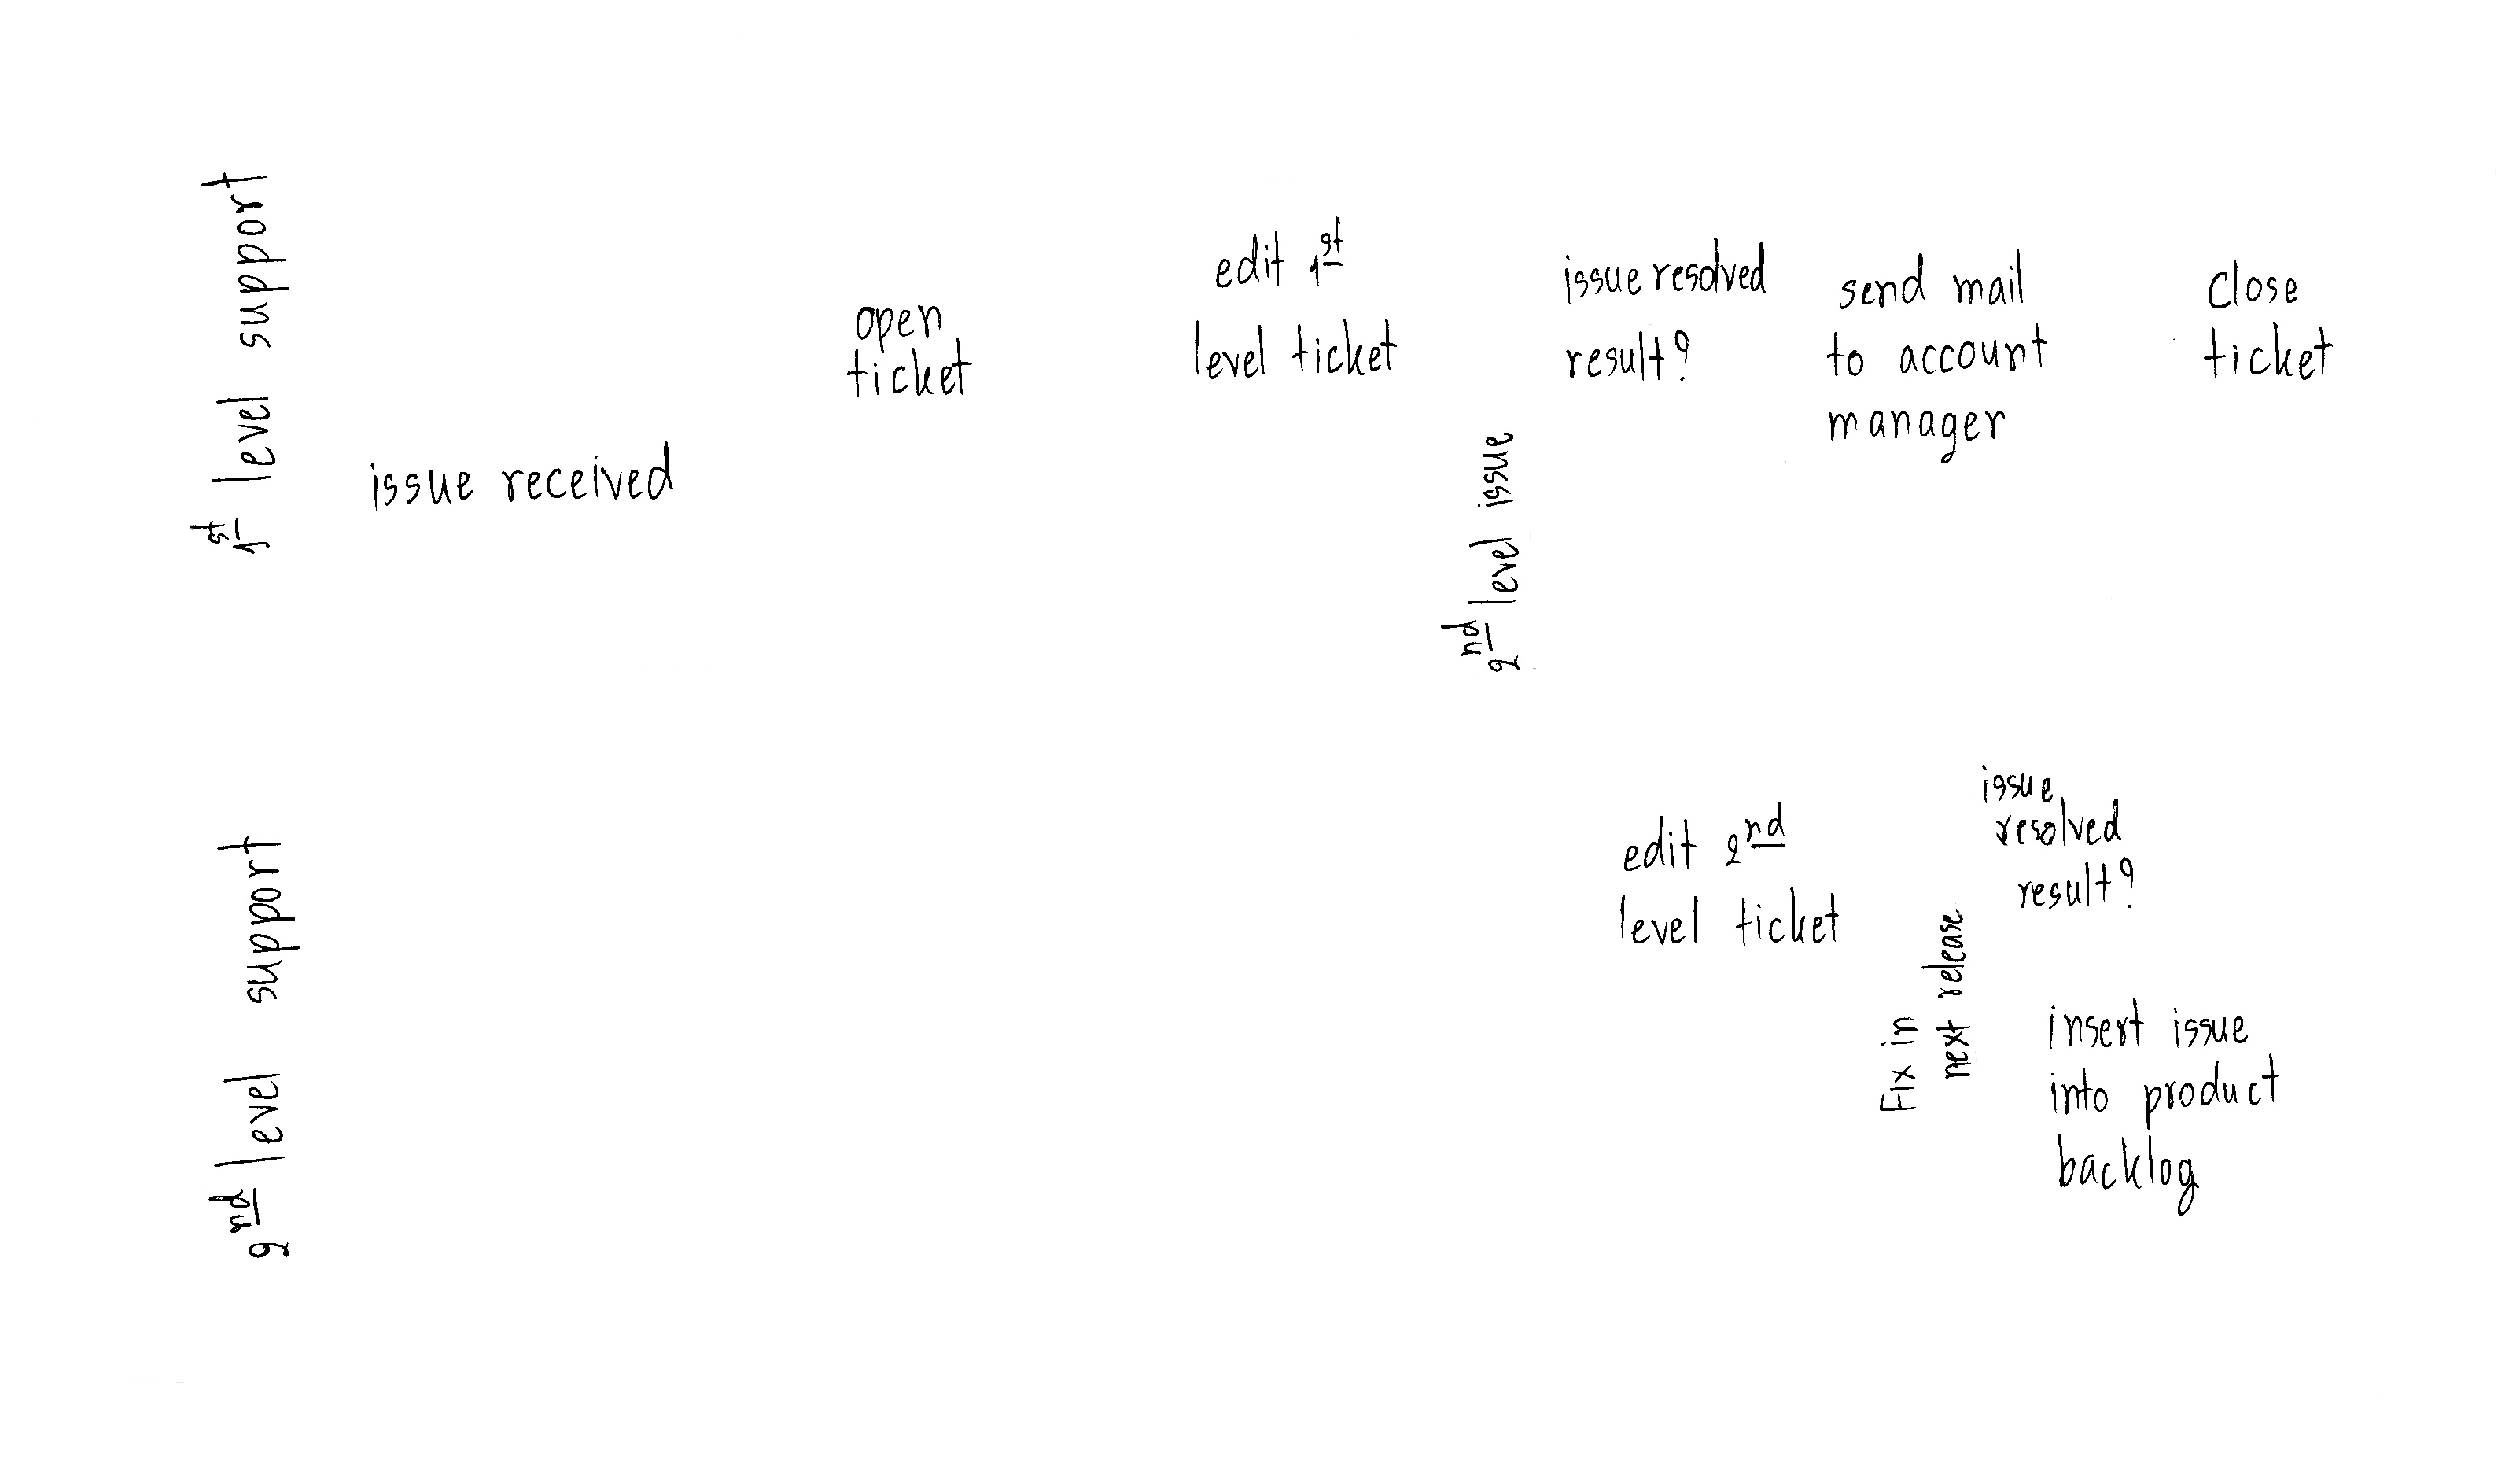 1st level support
issue received
open
ticket
edit 1st
level ticket
2nd level issue
issue resolved
result?
send mail
to account
manager
Close
ticket
2nd level support
edit 2nd
level ticket
Fix in
next release
issue
resolved
result?
insert issue
into product
backlog